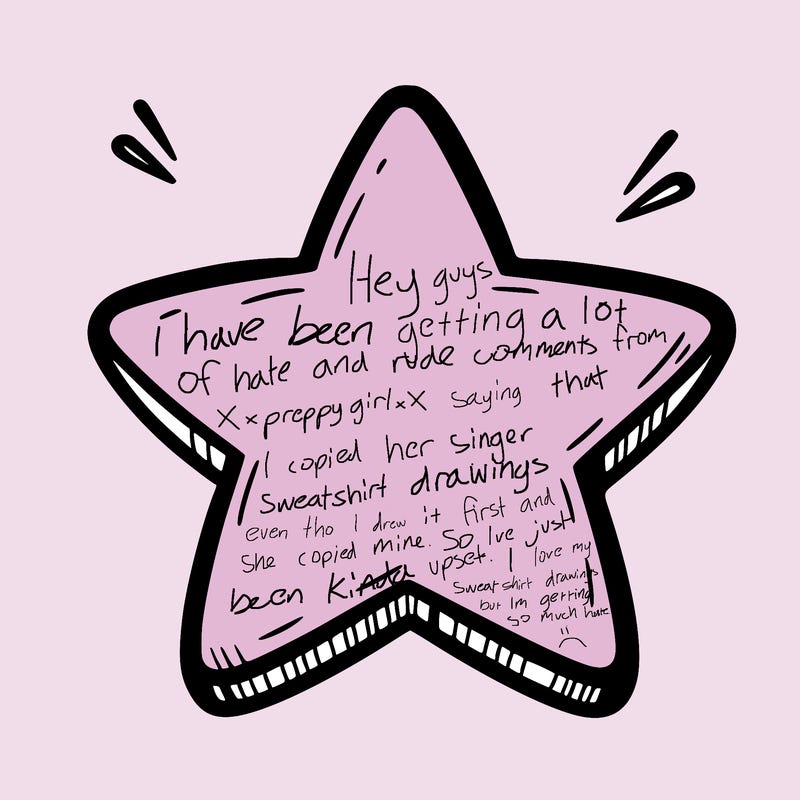 Hey guys
i have been getting a lot
of hate and rude comments from
XxpreppygirlxX saying that
I copied her singer
sweatshirt drawings
even tho I drew it first and
She copied mine. So Ive just
been kinda upset. I love my
sweatshirt drawings
but Im getting
so much hate
:(